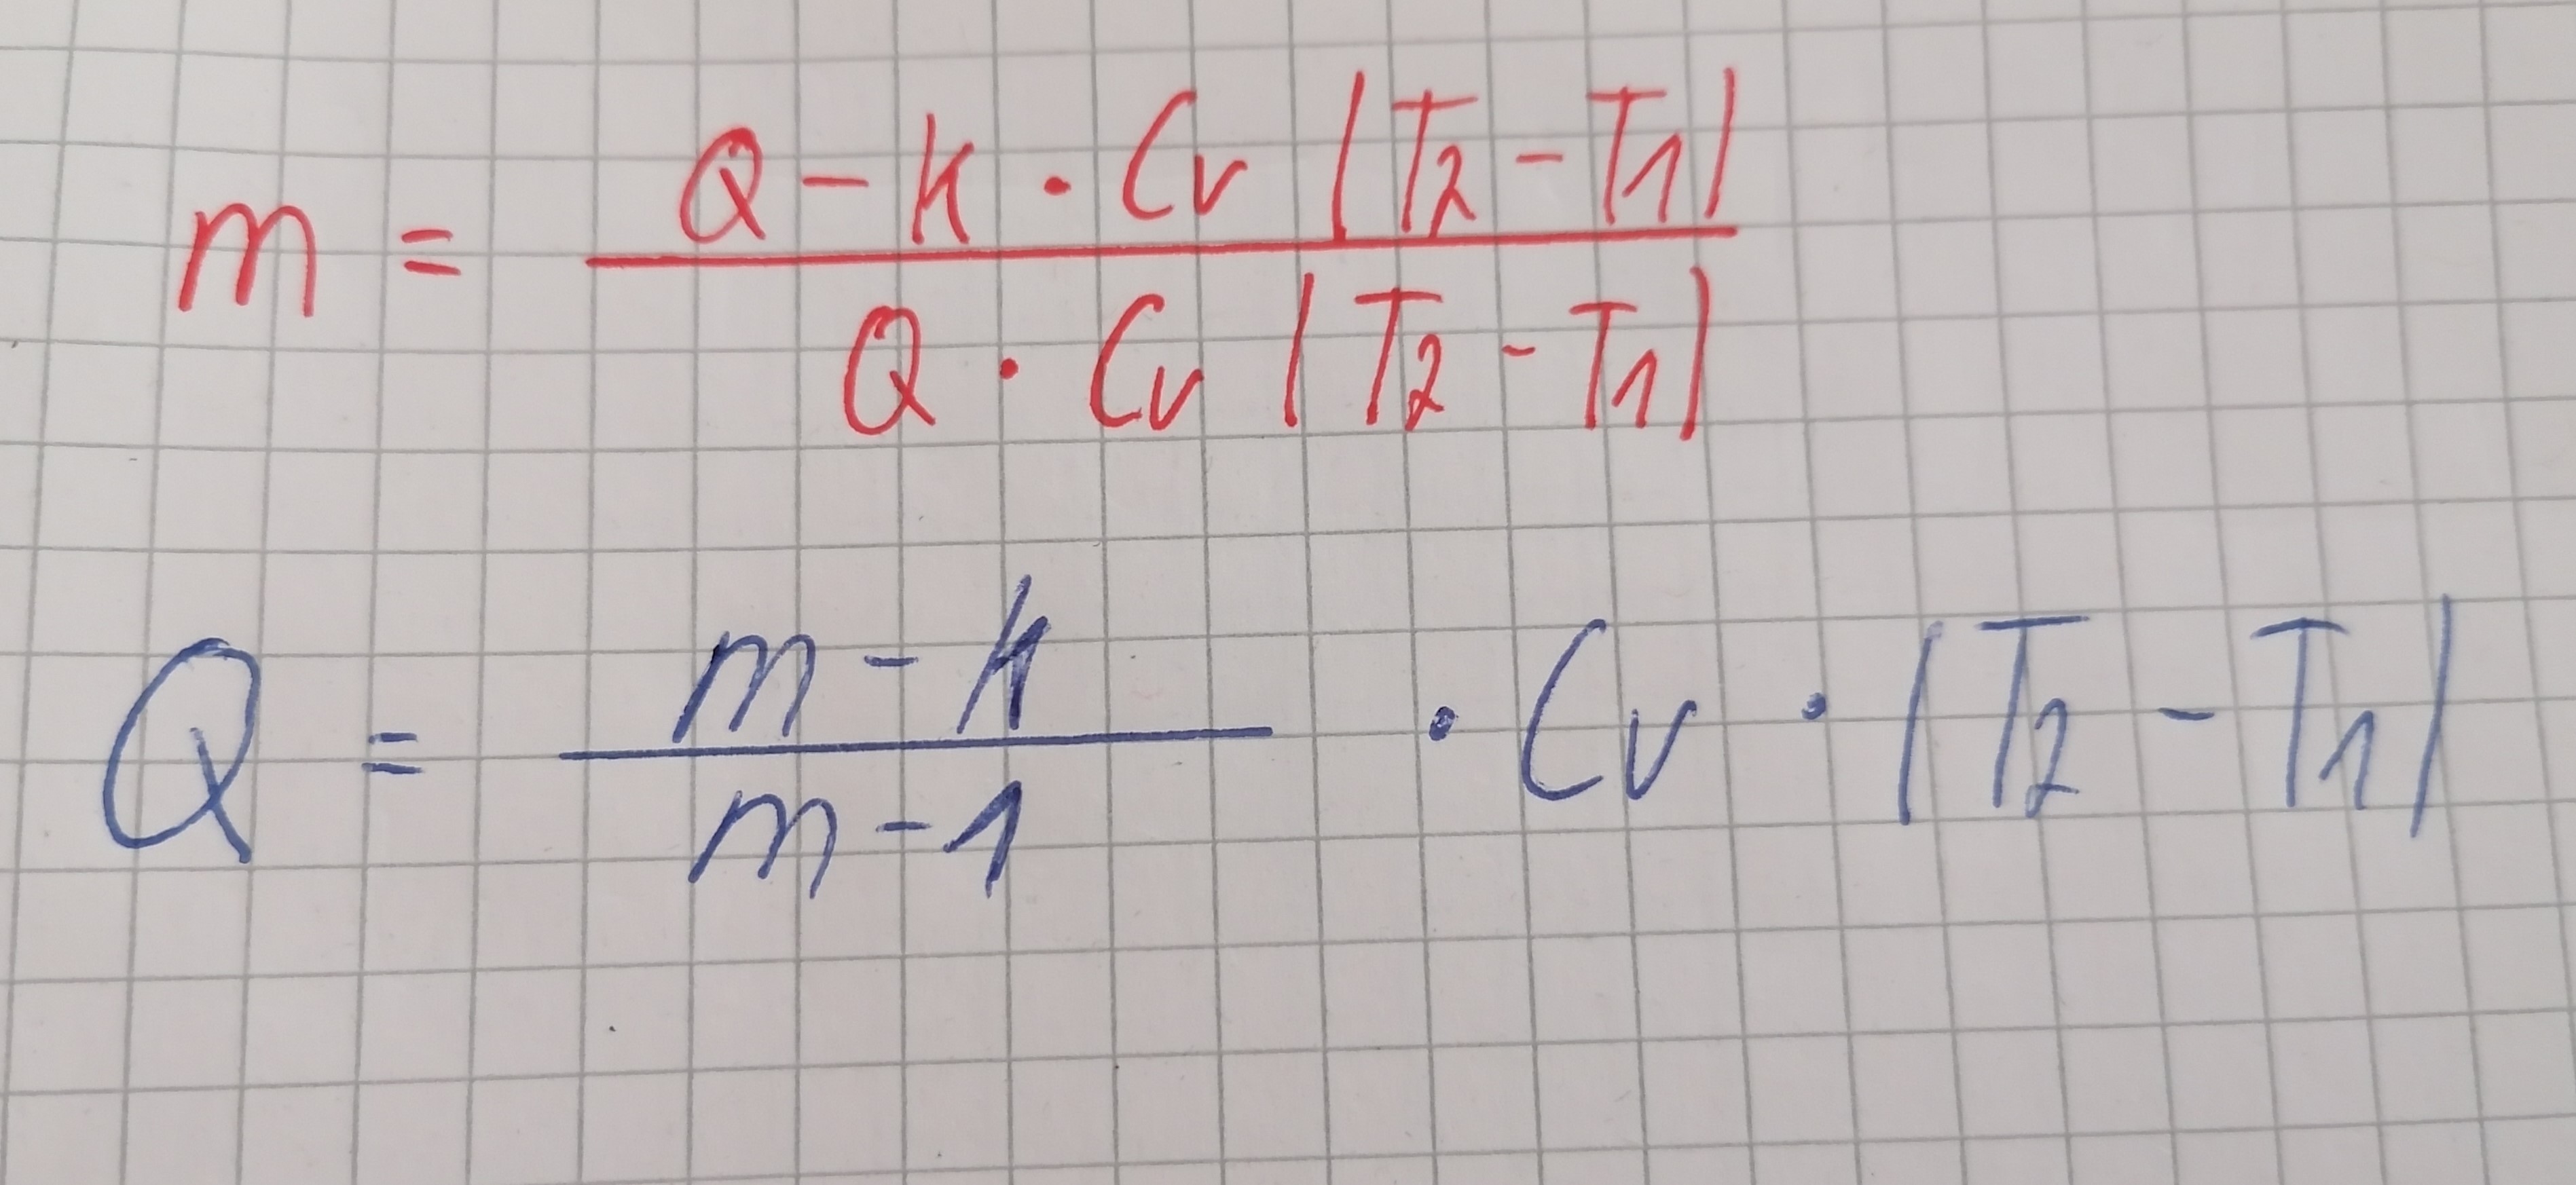 m = Q - k · Cv |T2 - T1|
Q · Cv |T2 - T1|
Q = m - k / m - 1 · Cv · |T2 - T1|